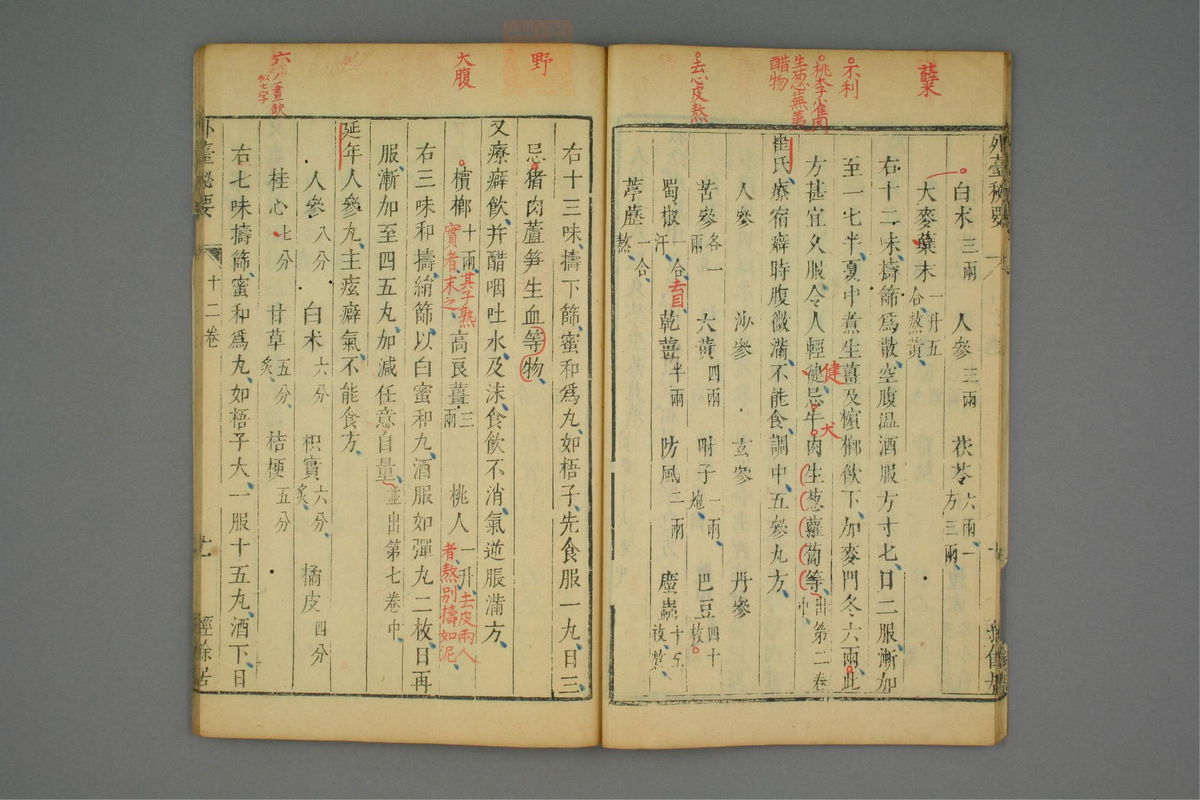 蘖
示利
桃李小隹肉
生葱蕪荑
醋物
去心皮熬
外臺秘要
白朮三兩 人參三兩 茯苓六兩一方三兩
大麥蘖末一升五合熬黃
右十二味擣篩爲散空腹温酒服方寸匕日二服漸加
至一匕半夏中煮生薑及檳榔飲下加麥門冬六兩此
方甚宜久服令人輕健忌牛肉生葱蘿蔔等出第二卷中
健
犬
崔氏療宿癖時腹微滿不能食調中五參丸方
人參 沙參 玄參 丹參
苦參各一兩 大黃四兩 附子一兩炮 巴豆四十枚
蜀椒一合汗去目 乾薑半兩 防風二兩 䗪蟲十五枚熬
葶藶一合熬
野
大腹
六八畫缺
似七字
右十三味擣下篩蜜和爲丸如梧子先食服一丸日三
忌猪肉蘆笋生血等物
又療癖飲并醋咽吐水及沫食飲不消氣逆脹滿方
檳榔十兩其子熟實者末之 高良薑三兩 桃人一升去皮兩人者熬别擣如泥
右三味和擣絹篩以白蜜和丸酒服如彈丸二枚日再
服漸加至四五丸加減任意自量並出第七卷中
延年人參丸主痃癖氣不能食方
人參八分 白朮六分 枳實六分炙 橘皮四分
桂心七分 甘草五分炙 桔梗五分
右七味擣篩蜜和爲丸如梧子大一服十五丸酒下日
外臺秘要 十二卷 經餘居